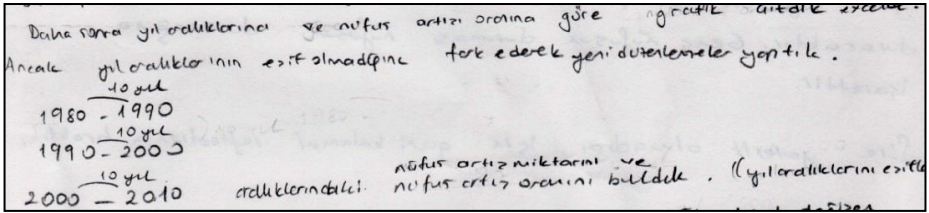 Daha sonra yıl aralıklarına ve nüfus artışı oranına göre grafik
Ancak yıl aralıklarının eşit olmadığını fark ederek yeni düzenlemeler yaptık.
10 yıl
1980 - 1990
10 yıl
1990 - 2000
10 yıl
2000 - 2010 aralıklarındaki nüfus artış miktarını ve
nüfus artış oranını bulduk. ((yıl aralıklarını